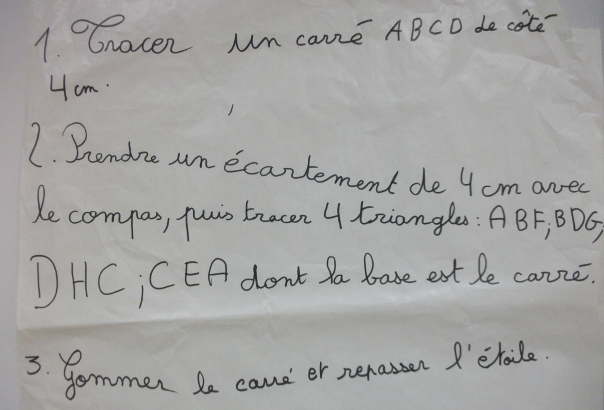 1. Tracer un carré ABCD de côté
4 cm.
2. Prendre un écartement de 4 cm avec
le compas, puis tracer 4 triangles : ABF; BDG;
DHC; CEA dont la base est le carré.
3. Gommer le carré et repasser l'étoile.